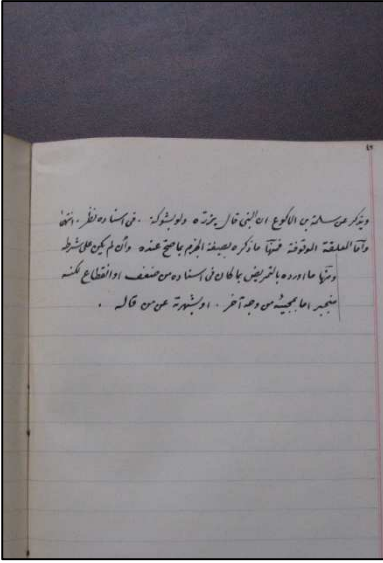 ويذكر عن سلمة بن الاكوع ان النبي قال يزره ولو بشوكة . فى اسناده نظر . انتهى
وأما المعلقة الموقوفة فمنها ما ذكره بصيغة الجزم ما صح عنده وأن لم يكن على شرطه
ومنها ما اورده بالتمريض ما كان فى اسناده من ضعف او انقطاع لكنه
منجبر اما بمجيئه من وجه آخر . او بشهرة عن من قاله .